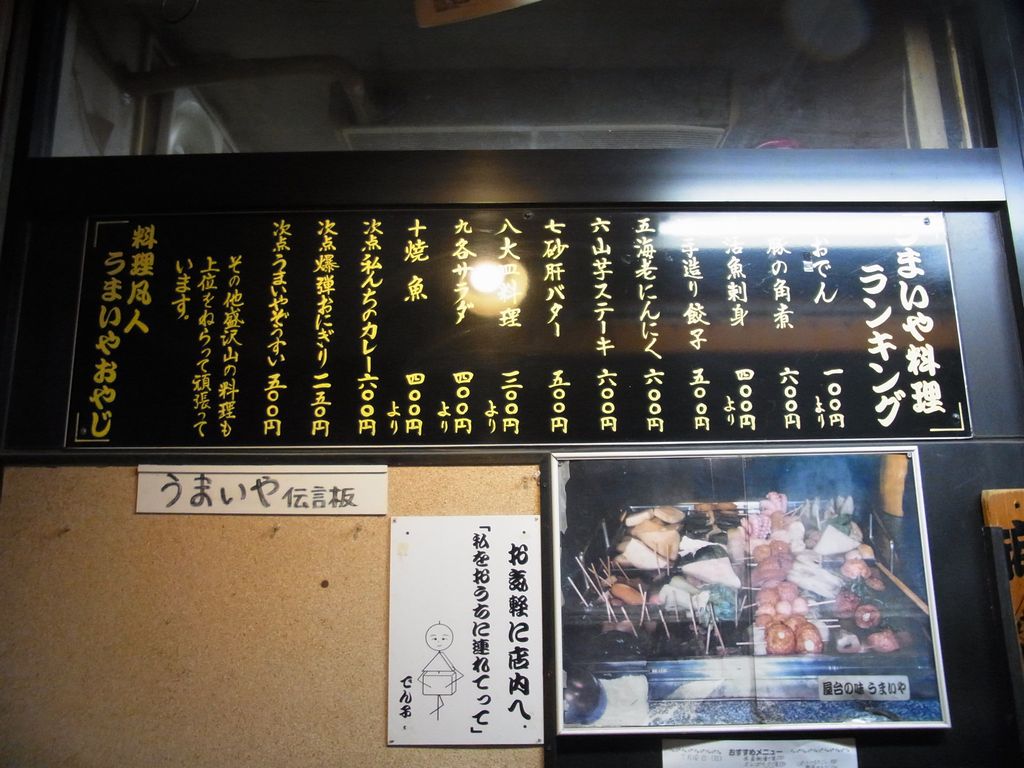 うまいや料理
ランキング
おでん 一〇〇円より
豚の角煮 六〇〇円
活魚刺身 四〇〇円より
手造り餃子 五〇〇円
五 海老にんにく 六〇〇円
六 山芋ステーキ 六〇〇円
七 砂肝バター 五〇〇円
八 大皿料理 三〇〇円より
九 各サラダ 四〇〇円より
十 焼魚 四〇〇円より
次点 私んちのカレー 六〇〇円
次点 爆弾おにぎり 二五〇円
次点 うまいやぞうすい 五〇〇円
その他盛沢山の料理も
上位をねらって頑張って
います。
料理凡人
うまいやおやじ
うまいや 伝言板
お気軽に店内へ
「私をおうちに連れてって」
でん子
屋台の味 うまいや
おすすめメニュー